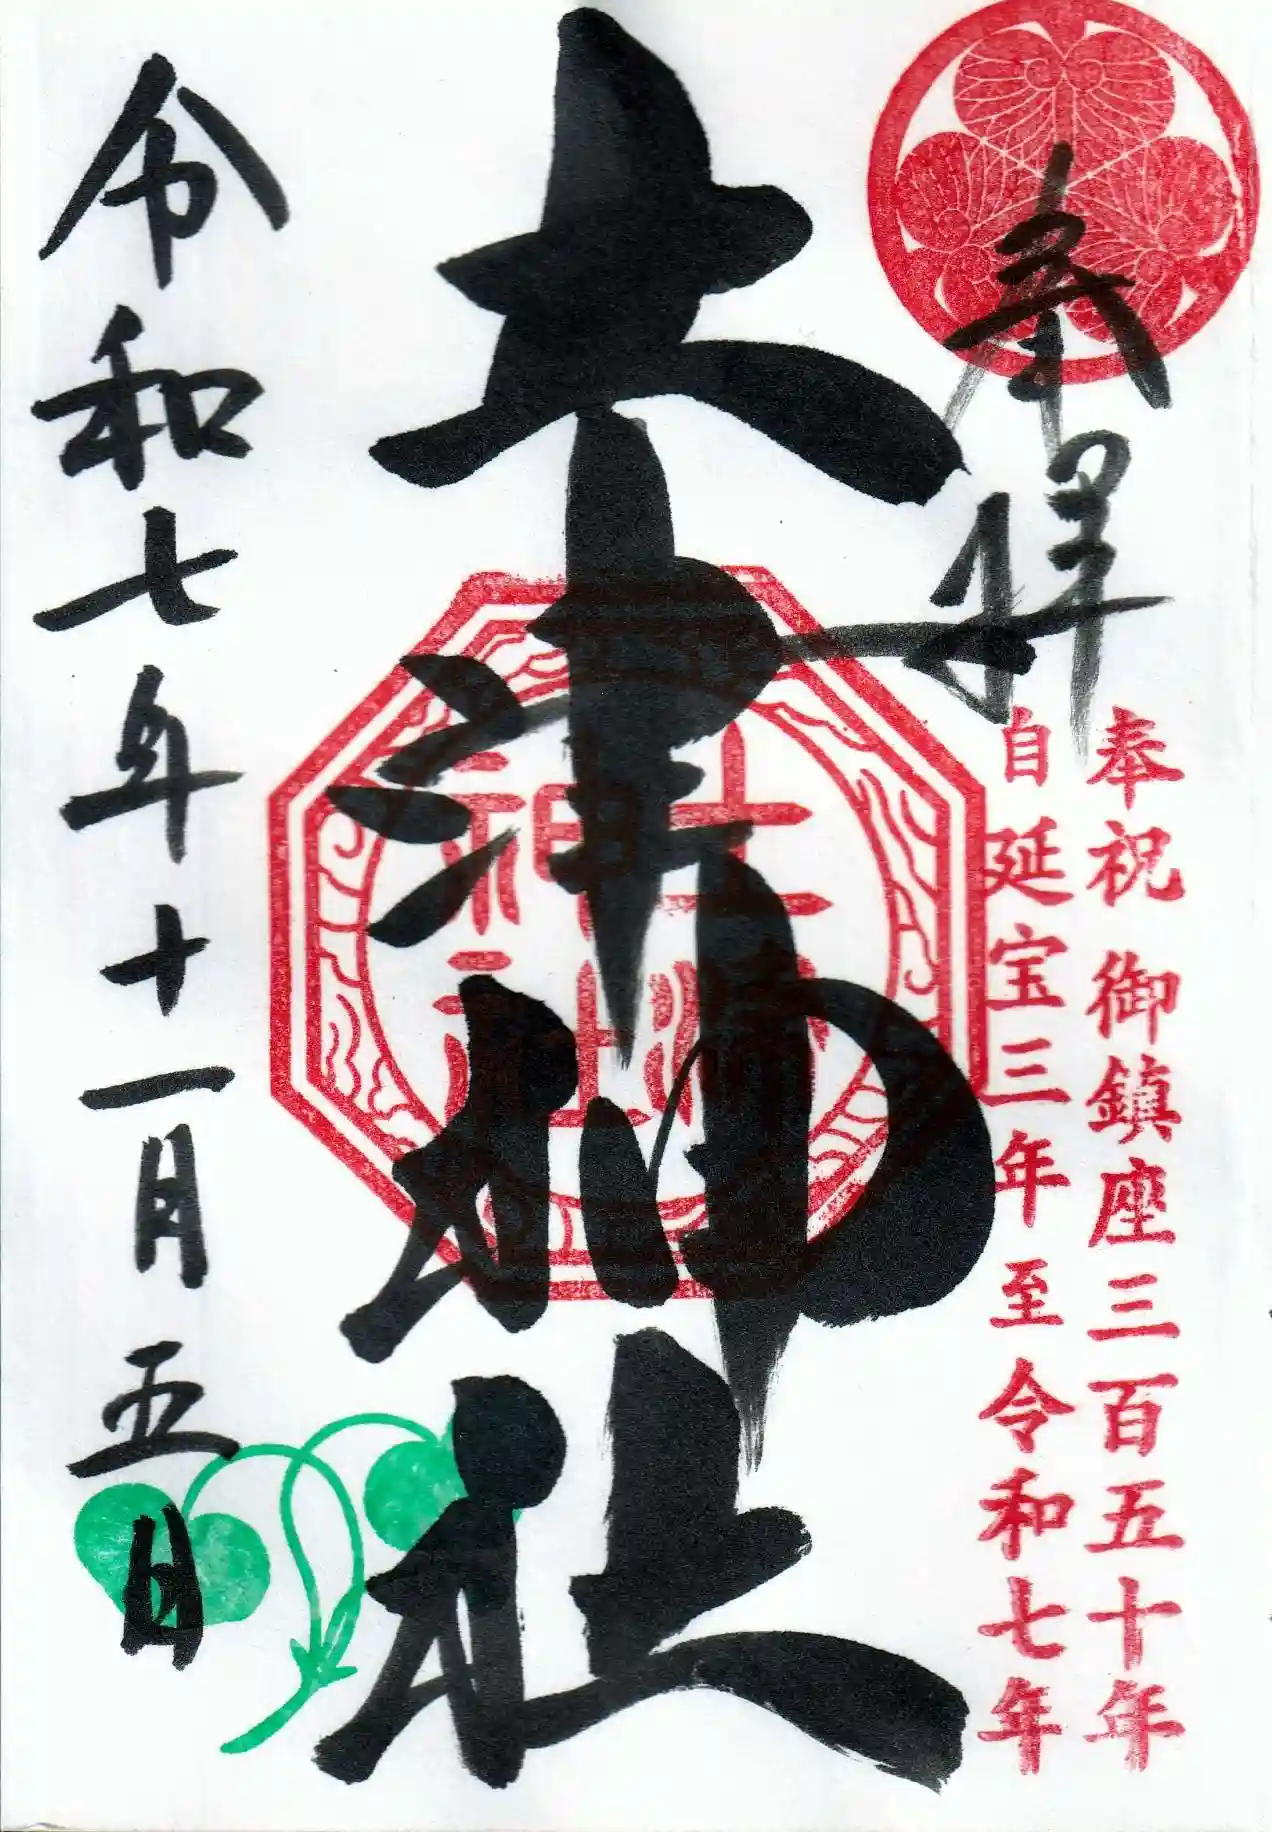 奉拝
奉祝 御鎮座三百五十年
自延宝三年 至令和七年
土津神社
土津
神社
令和七年十一月五日